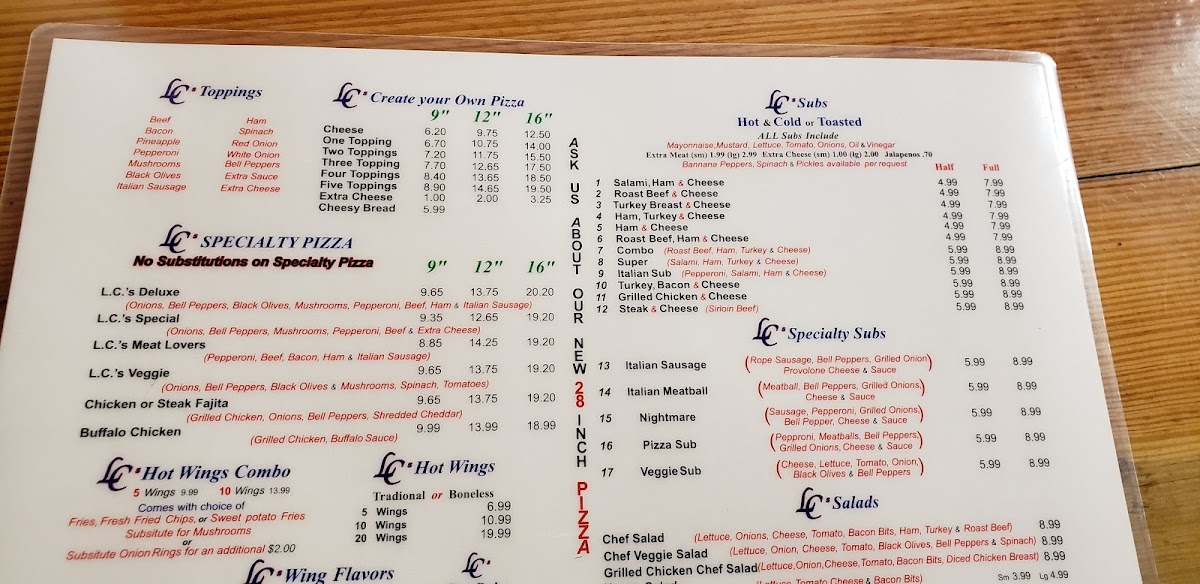 LC's Toppings
Beef Ham
Bacon Spinach
Pineapple Red Onion
Pepperoni White Onion
Mushrooms Bell Peppers
Black Olives Extra Sauce
Italian Sausage Extra Cheese
LC's Create your Own Pizza
9" 12" 16"
Cheese 6.20 9.75 12.50
One Topping 6.70 10.75 14.00
Two Toppings 7.20 11.75 15.50
Three Topping 7.70 12.65 17.50
Four Toppings 8.40 13.65 18.50
Five Toppings 8.90 14.65 19.50
Extra Cheese 1.00 2.00 3.25
Cheesy Bread 5.99
LC's SPECIALTY PIZZA
No Substitutions on Specialty Pizza
9" 12" 16"
L.C.'s Deluxe 9.65 13.75 20.20
(Onions, Bell Peppers, Black Olives, Mushrooms, Pepperoni, Beef, Ham & Italian Sausage)
L.C.'s Special 9.35 12.65 19.20
(Onions, Bell Peppers, Mushrooms, Pepperoni, Beef & Extra Cheese)
L.C.'s Meat Lovers 8.85 14.25 19.20
(Pepperoni, Beef, Bacon, Ham & Italian Sausage)
L.C.'s Veggie 9.65 13.75 19.20
(Onions, Bell Peppers, Black Olives & Mushrooms, Spinach, Tomatoes)
Chicken or Steak Fajita 9.65 13.75 19.20
(Grilled Chicken, Onions, Bell Peppers, Shredded Cheddar)
Buffalo Chicken 9.99 13.99 18.99
(Grilled Chicken, Buffalo Sauce)
LC's Hot Wings Combo
5 Wings 9.99 10 Wings 13.99
Comes with choice of
Fries, Fresh Fried Chips, or Sweet potato Fries
Subsitute for Mushrooms
or
Subsitute Onion Rings for an additional $2.00
LC's Hot Wings
Tradional or Boneless
5 Wings 6.99
10 Wings 10.99
20 Wings 19.99
LC's Wing Flavors
LC's
ASK US ABOUT OUR NEW 28 INCH PIZZA
LC's Subs
Hot & Cold or Toasted
ALL Subs Include
Mayonnaise,Mustard, Lettuce, Tomato, Onions, Oil & Vinegar
Extra Meat (sm) 1.99 (lg) 2.99 Extra Cheese (sm) 1.00 (lg) 2.00 Jalapenos .70
Bannana Peppers, Spinach & Pickles available per request
Half Full
1 Salami, Ham & Cheese 4.99 7.99
2 Roast Beef & Cheese 4.99 7.99
3 Turkey Breast & Cheese 4.99 7.99
4 Ham, Turkey & Cheese 4.99 7.99
5 Ham & Cheese 4.99 7.99
6 Roast Beef, Ham & Cheese 4.99 7.99
7 Combo (Roast Beef, Ham, Turkey & Cheese) 5.99 8.99
8 Super (Salami, Ham, Turkey & Cheese) 5.99 8.99
9 Italian Sub (Pepperoni, Salami, Ham & Cheese) 5.99 8.99
10 Turkey, Bacon & Cheese 5.99 8.99
11 Grilled Chicken & Cheese 5.99 8.99
12 Steak & Cheese (Sirloin Beef) 5.99 8.99
LC's Specialty Subs
13 Italian Sausage (Rope Sausage, Bell Peppers, Grilled Onion, 5.99 8.99
Provolone Cheese & Sauce)
14 Italian Meatball (Meatball, Bell Peppers, Grilled Onions, 5.99 8.99
Cheese & Sauce)
15 Nightmare (Sausage, Pepperoni, Grilled Onions, 5.99 8.99
Bell Pepper, Cheese & Sauce)
16 Pizza Sub (Pepproni, Meatballs, Bell Peppers, 5.99 8.99
Grilled Onions, Cheese & Sauce)
17 Veggie Sub (Cheese, Lettuce, Tomato, Onion, 5.99 8.99
Black Olives & Bell Peppers)
LC's Salads
Chef Salad (Lettuce, Onions, Cheese, Tomato, Bacon Bits, Ham, Turkey & Roast Beef) 8.99
Chef Veggie Salad (Lettuce, Onion, Cheese, Tomato, Black Olives, Bell Peppers & Spinach) 8.99
Grilled Chicken Chef Salad (Lettuce,Onion,Cheese,Tomato,Bacon Bits, Diced Chicken Breast) 8.99
(Lettuce, Tomato Cheese & Bacon Bits) Sm 3.99 Lg 4.99